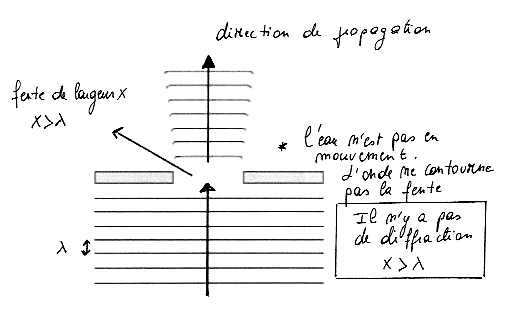 direction de propagation
fente de largeur X
X>λ
* l'eau n'est pas en
mouvement.
L'onde ne contourne
pas la fente
Il n'y a pas
de diffraction
X>λ
λ